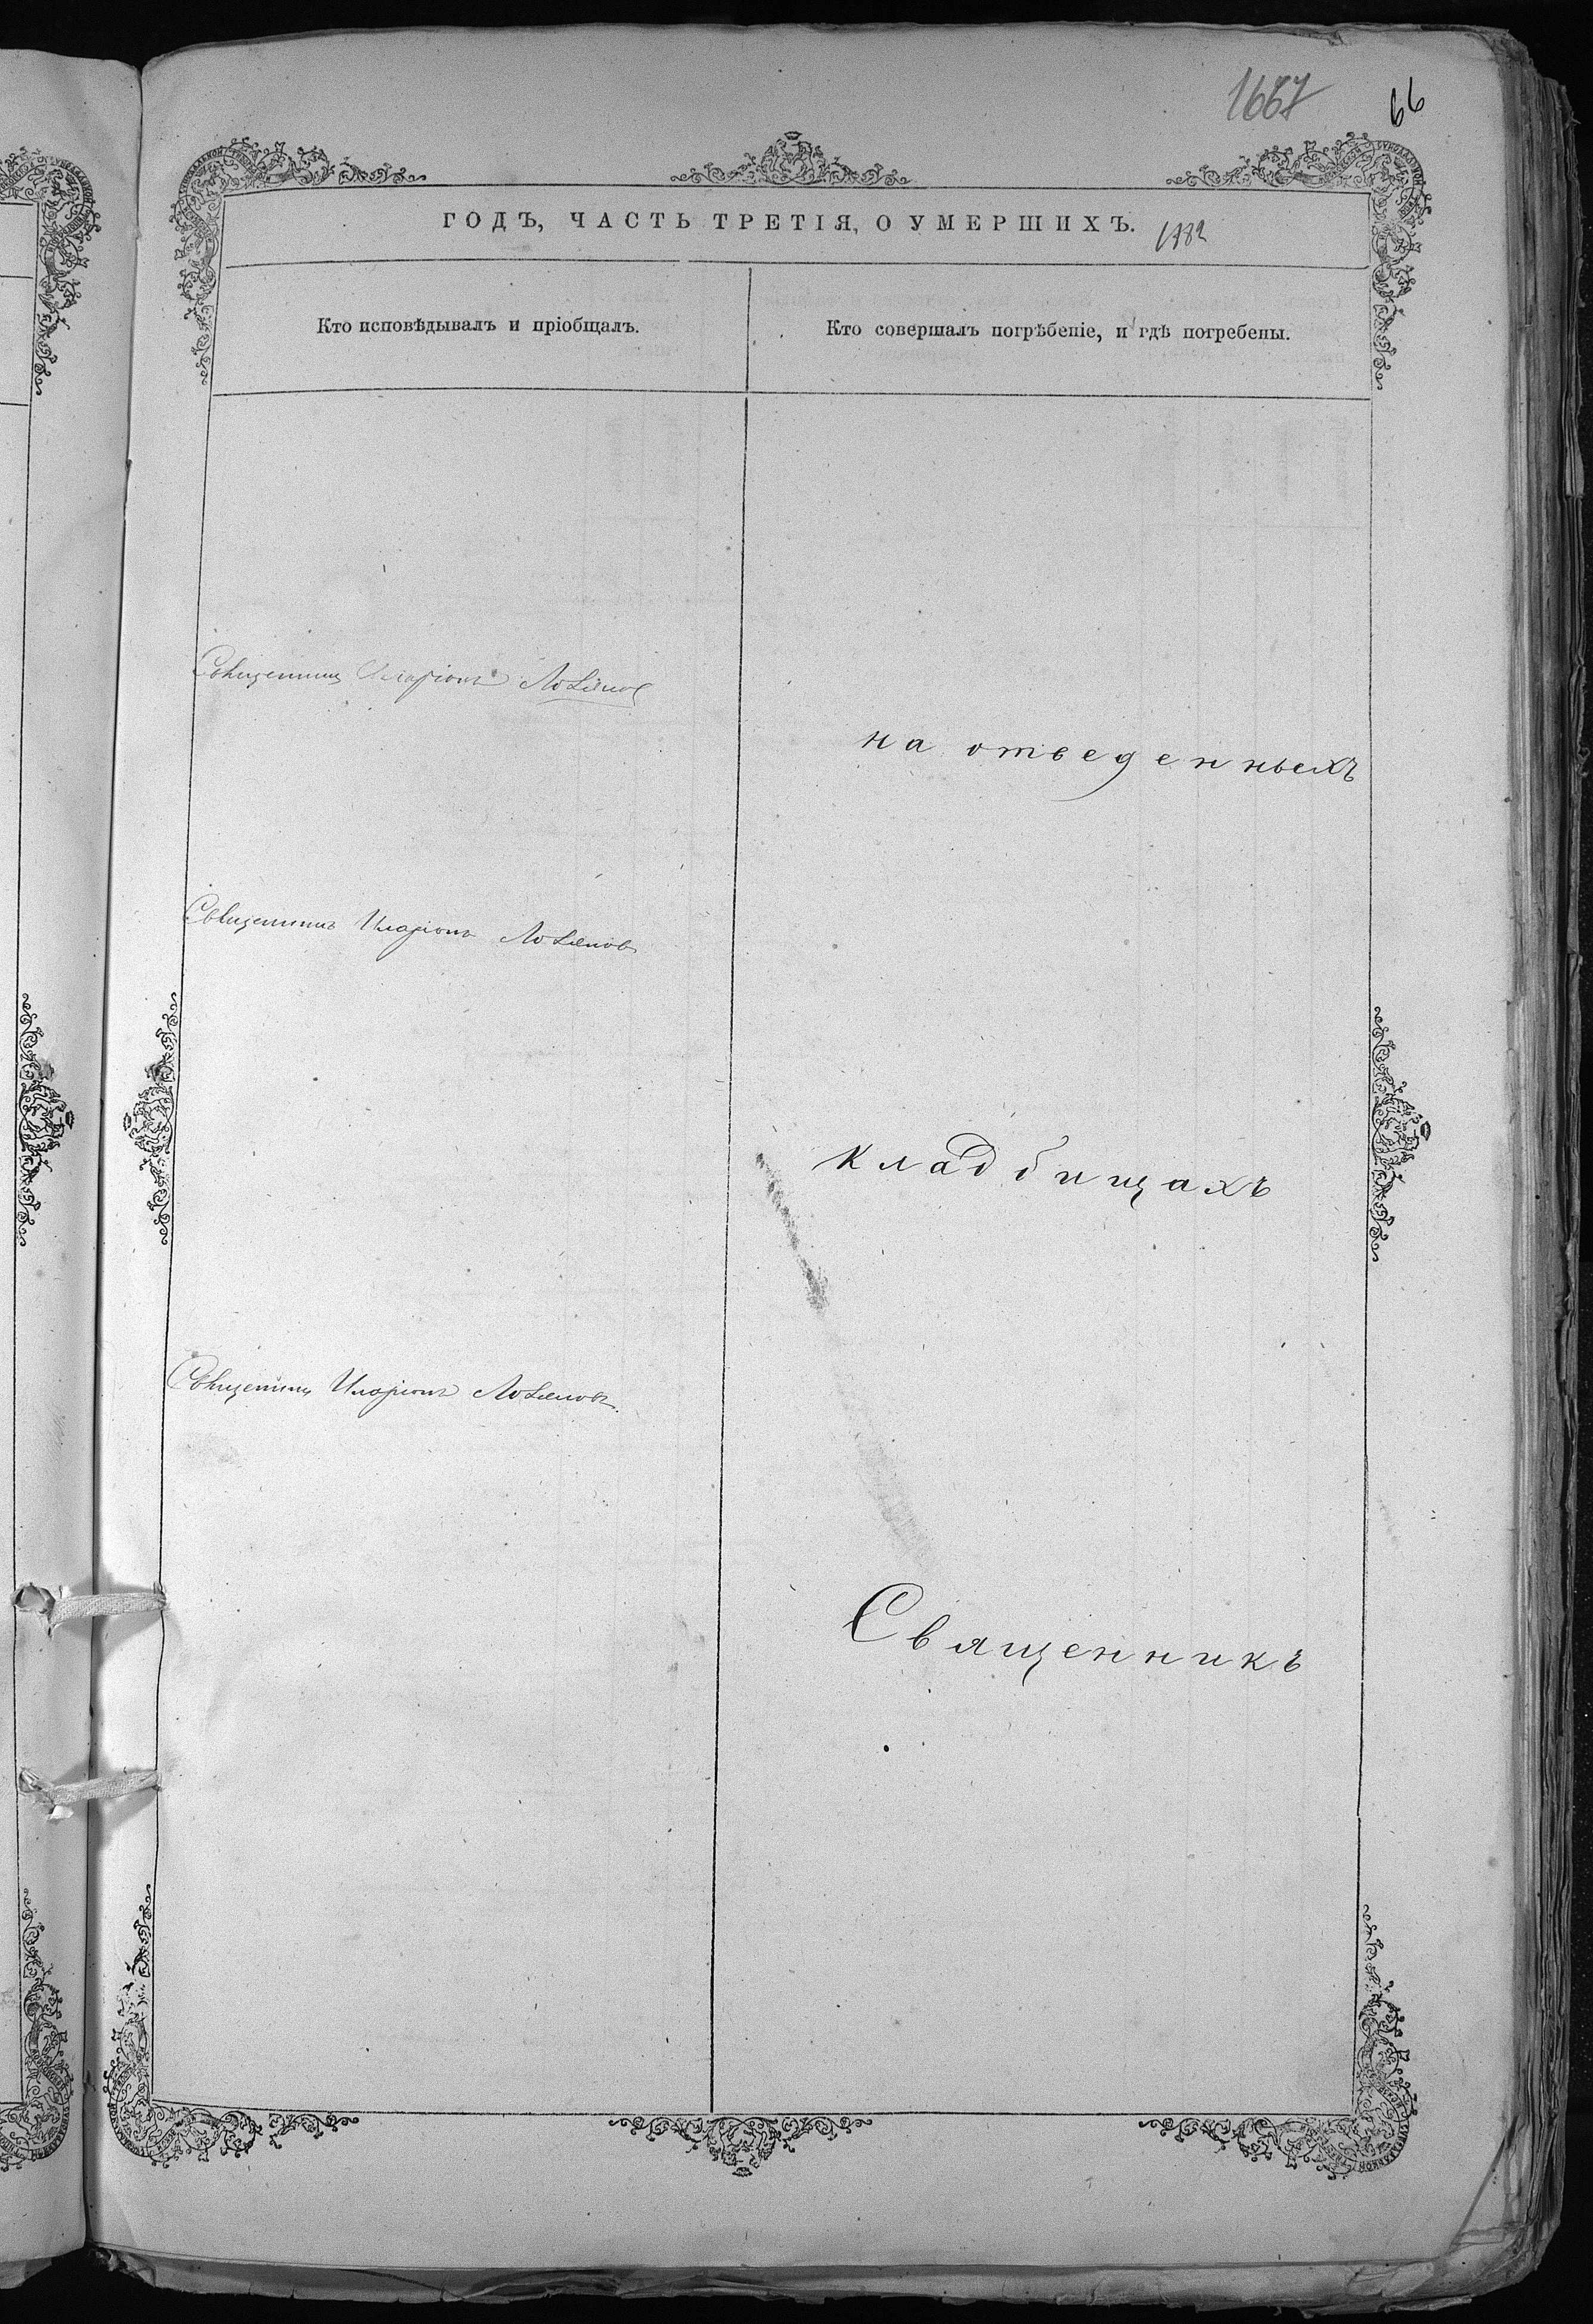 1667
66
ГОДЪ, ЧАСТЬ ТРЕТІЯ, О УМЕРШИХЪ.
Кто исповѣдывалъ и пріобщалъ.
Кто совершалъ погрѣбеніе, и гдѣ погребены.
Священникъ Иларіонъ
на отведенныхъ
Священникъ Иларіонъ
кладбищахъ
Священникъ Иларіонъ
Священникъ